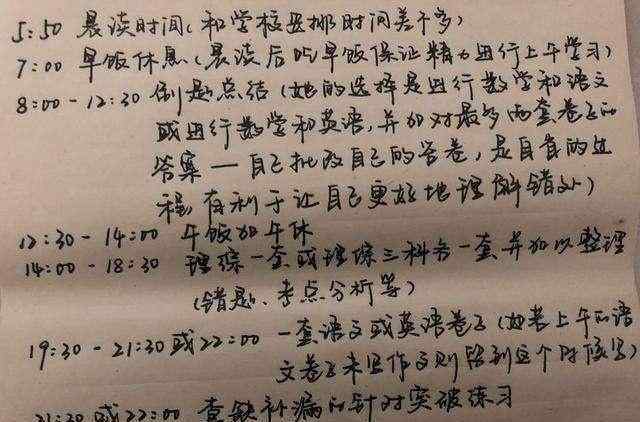 5:50 晨读时间(和学校安排时间差不多)
7:00 早饭休息(晨读后吃早饭保证精力进行上午学习)
8:00-12:30 例题总结(她的选择是进行数学和语文
或进行数学和英语,并如对最多两套卷子的
答案—自己批改自己的答卷,是自省的过
程,有利于让自己更好地理解错处)
12:30-14:00 午饭加午休
14:00-18:30 理综一套或理综三科各一套并加以整理
(错题、考点分析等)
19:30-21:30或22:00 一套语文或英语卷子(如果上午的语
文卷子未写作文则留到这个时候写)
21:30或22:00 查缺补漏的针对突破练习